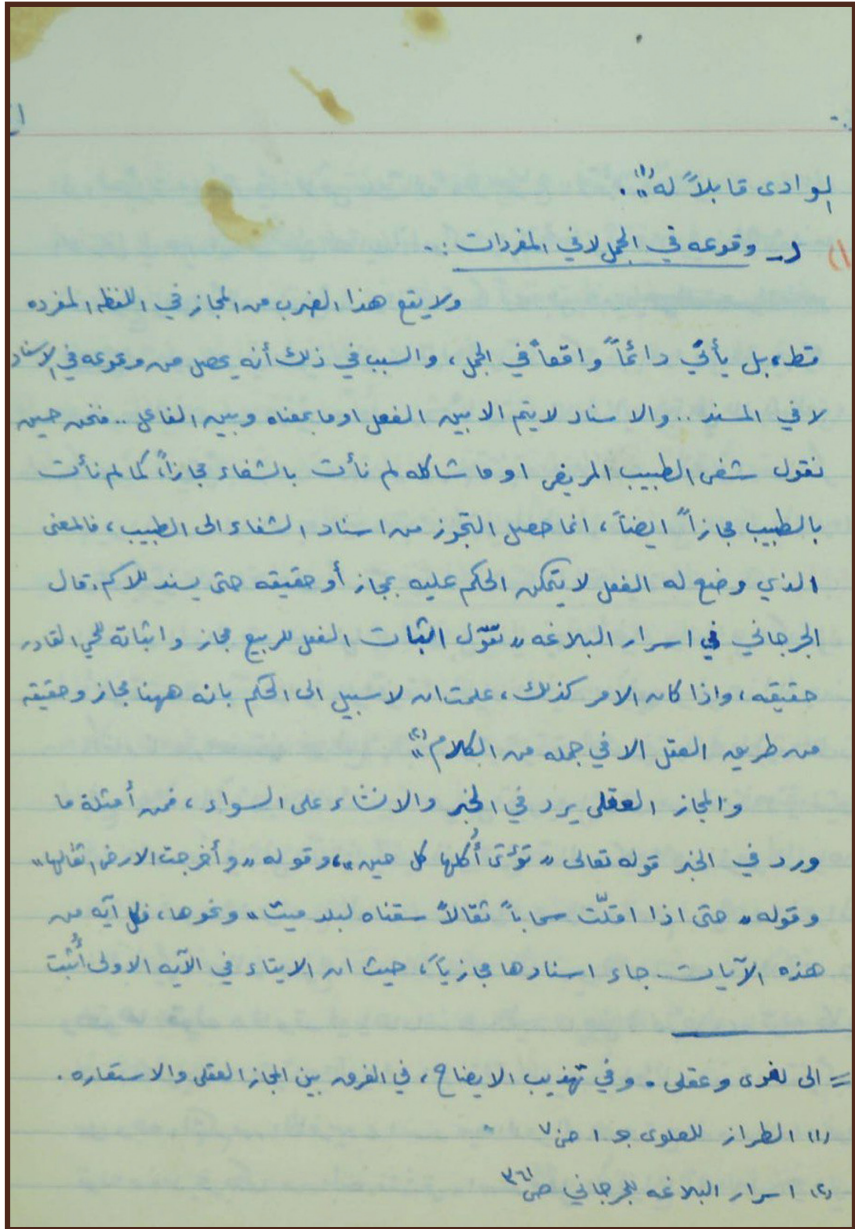 الوادى قابلاً له (١) .
١- وقوعه في الجمل لا في المفردات :
ولا يقع هذا الضرب من المجاز في اللفظه المفرده
قط، بل يأتي دائماً واقعاً في الجمل، والسبب في ذلك أنه يحصل من وقوعه في الاسناد
لا في المسند .. والاسناد لا يتم الا بين الفعل او ما بمعناه وبين الفاعل .. فنحن حين
نقول شفى الطبيب المريض او ما شاكله لم نأت بالشفاء مجازاً، كما لم نأت
بالطبيب مجازاً ايضاً، انما حصل التجوز من اسناد الشفاء الى الطبيب، فالمعنى
الذي وضع له الفعل لا يتمكن الحكم عليه بمجاز أو حقيقه حتى يسند للاسم. قال
الجرجاني في اسرار البلاغه « تقوّل اثبات الفعل للربيع مجاز واثباته للحي القادر
حقيقه، واذا كان الامر كذلك، علمت ان لا سبيل الى الحكم بانه ههنا مجاز وحقيقه
من طريق العقل الا في جمله من الكلام » (٢)
والمجاز العقلى يرد في الخبر والانشاء على السواء، فمن أمثلة ما
ورد في الخبر قوله تعالى « تؤتى أُكلها كل حين »، وقوله « وأخرجت الارض اثقالها »
وقوله « حتى اذا اقلّت سحاباً ثقالاً سقناه لبلد ميت » ونحوها، فكل آيه من
هذه الآيات جاء اسنادها مجازياً، حيث ان الايتاء في الآيه الاولى أُثبت
= الى لغوى وعقلى . وفي تهذيب الايضاح، في الفرق بين المجاز العقلى والاستعاره .
(١) الطراز للعلوى جـ ١ ص ٧
(٢) اسرار البلاغه للجرجاني ص ٣٦١